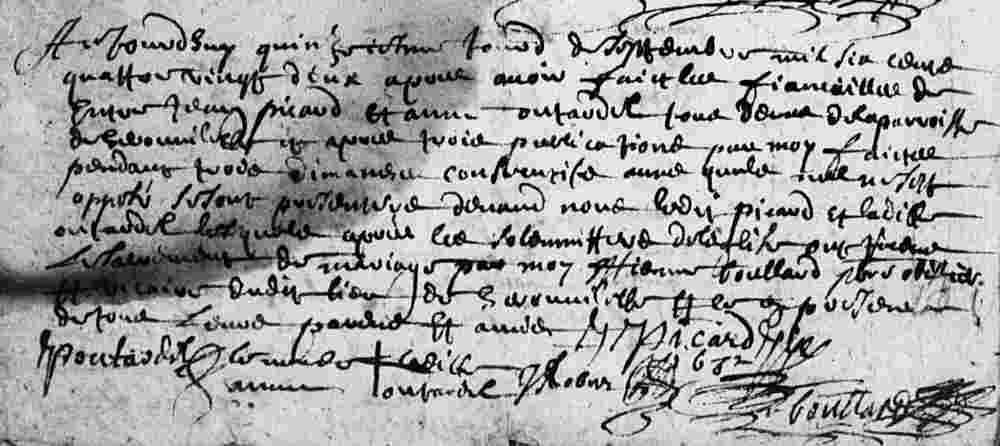 Aujourdhuy quinziesme jour de septembre mil six cens
quattre vingt deux apres avoir faict les fiancailles de
Entre Jean picard et anne outardel tous deux de la parroisse
de herouville et apres trois publications par moy faictes
pendant trois dimanches consecutifs auxquels nul ne sest
opposé se sont presentés devand nous ledit picard et ladite
outardel lesquels apres les solemnittes de leglise ont
le sacrement de mariage par moy Estienne boullard pbre
et vicaire dudit lieu de herouville et ce en presence
de tous leurs parens et amis J Picard
outardel le merc ladite
anne outardel Robert
boullard